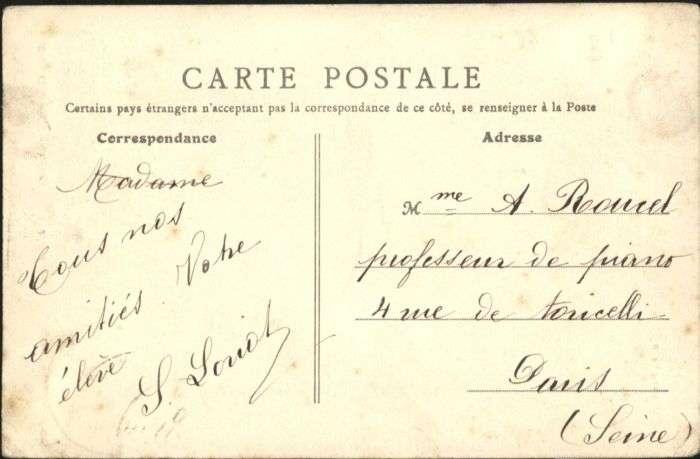 CARTE POSTALE
Certains pays étrangers n'acceptant pas la correspondance de ce côté, se renseigner à la Poste
Correspondance
Madame
Tous nos
amitiés. Votre
élève
S. Loriot
Adresse
Mme A. Roucel
professeur de piano
4 rue de toricelli
Paris
(Seine)